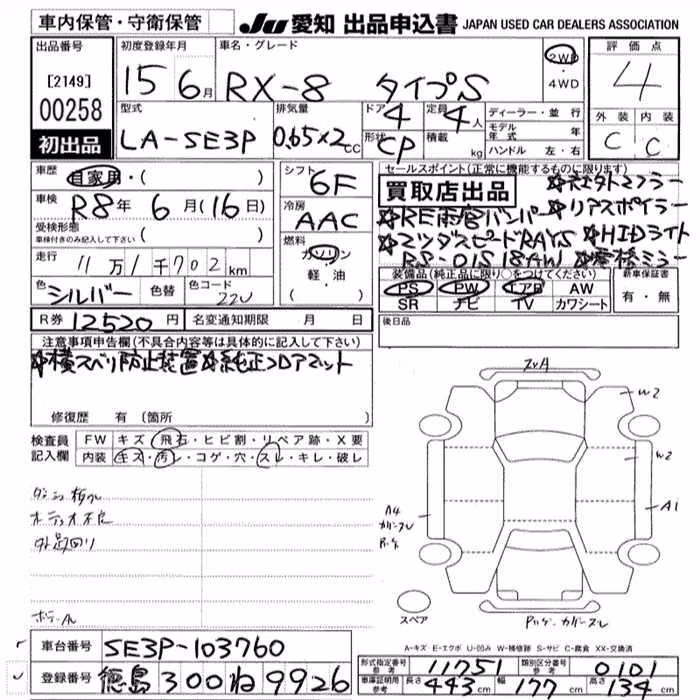 車内保管・守衛保管 JU 愛知 出品申込書 JAPAN USED CAR DEALERS ASSOCIATION
出品番号 [2149] 00258 初出品
初度登録年月 15年6月
車名・グレード RX-8 タイプS 2WD・4WD
評価点 4
外装 C 内装 C
型式 LA-SE3P
排気量 0.65×2 CC
ドア 4 形状 CP
定員 4人 積載 kg
ディーラー・並行
モデル年式 年
ハンドル 左・右
車歴 自家用・( )
車検 R8年 6月(16日)
受検形態 車検付きのみ記入して下さい ( )
走行 11万1千702km
色 シルバー 色替 色コード 22V
シフト 6F
冷房 AAC
燃料 ガソリン 軽油 ( )
セールスポイント(正常に機能するものに限ります)
買取店出品
☆社外マフラー
☆RE雨宮バンパー ☆リアスポイラー
☆マツダスピードRAYS ☆HIDライト
RS-01S 18AW
装備品(純正品に限り○をつけてください)
PS PW エアB AW
SR ナビ TV カワシート
新車保証書 有・無
R券 12520円 名変通知期限 月 日
後日品
注意事項申告欄(不具合内容等は具体的に記入して下さい)
☆横スベリ防止装置☆純正フロアマット
修復歴 有 (箇所 )
検査員記入欄
FW キズ・飛石・ヒビ割・リペア跡・X要
内装 キズ・汚レ・コゲ・穴・スレ・キレ・破レ
オーディオ不良
W2
W2
A1
A4
スペア
A-キズ E-エクボ U-凹み W-補修跡 S-サビ C-腐食 XX-交換済
車台番号 SE3P-103760
登録番号 徳島300ね9926
形式指定番号 参考 11751 類別区分番号 参考 0101
車庫証明用 参考 長さ 443cm 幅 177cm 高さ 134cm